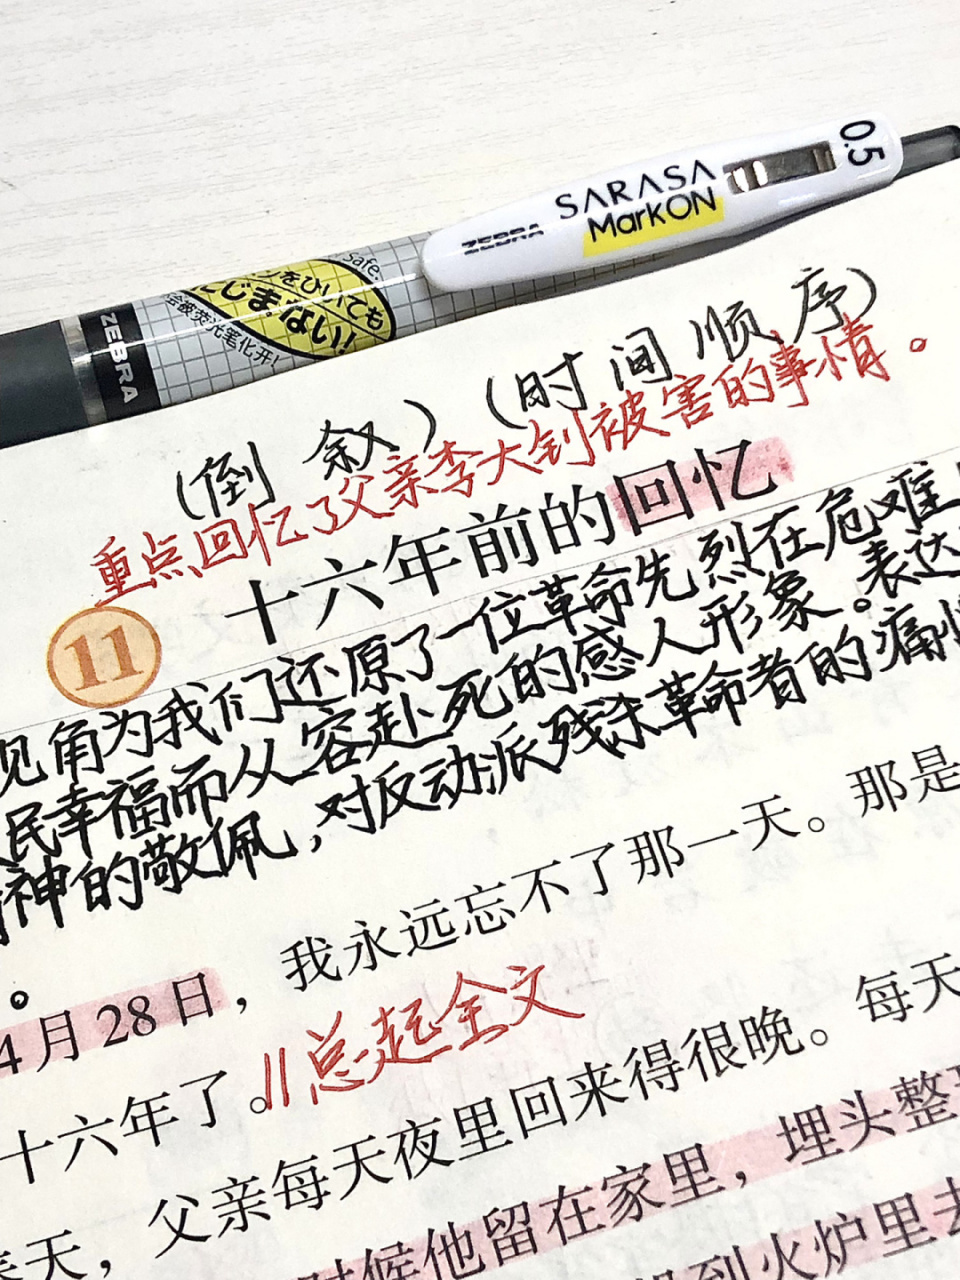 0.5
SARASA
MarkON
ZEBRA
safe.
ンをひいても
にじまない!
会被荧光笔化开!
ZEBRA
(倒叙) (时间顺序)
重点回忆了父亲李大钊被害的事情。
十六年前的回忆
11
位革命先烈在危难
见角为我们还原了一
民幸福而从容赴死的感人形象。表达
神的敬佩,对反动派残杀革命者的痛
。
4月28日,我永远忘不了那一天。那是
十六年了。//总起全文
天,父亲每天夜里回来得很晚。每天
时候他留在家里,埋头整
到火炉里去